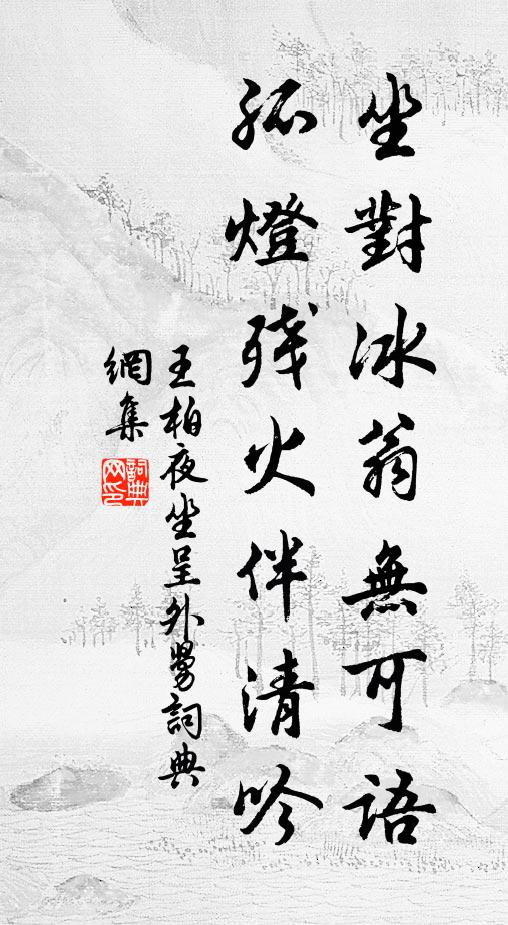 坐對冰翁無可語
孤燈殘火伴清吟
王柏夜坐呈外舅詞典
網集
詞典
网印